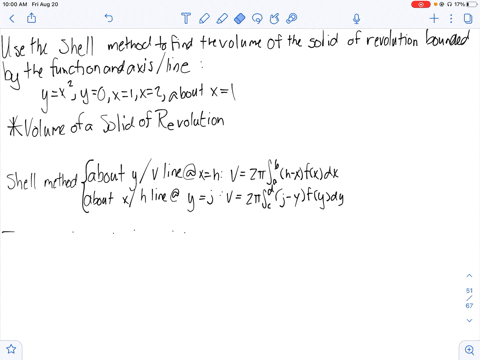 10:00 AM Fri Aug 20
17%
Use the Shell method to find the volume of the solid of revolution bounded
by the function and axis/line:
y=x², y=0, x=1, x=2, about x=1
*Volume of a Solid of Revolution
Shell method { about y/v line @ x=h: V=2π∫ₐᵇ(h-x)f(x)dx
about x/h line @ y=j: V=2π∫꜀ᵈ(j-y)f(y)dy
51
/
67